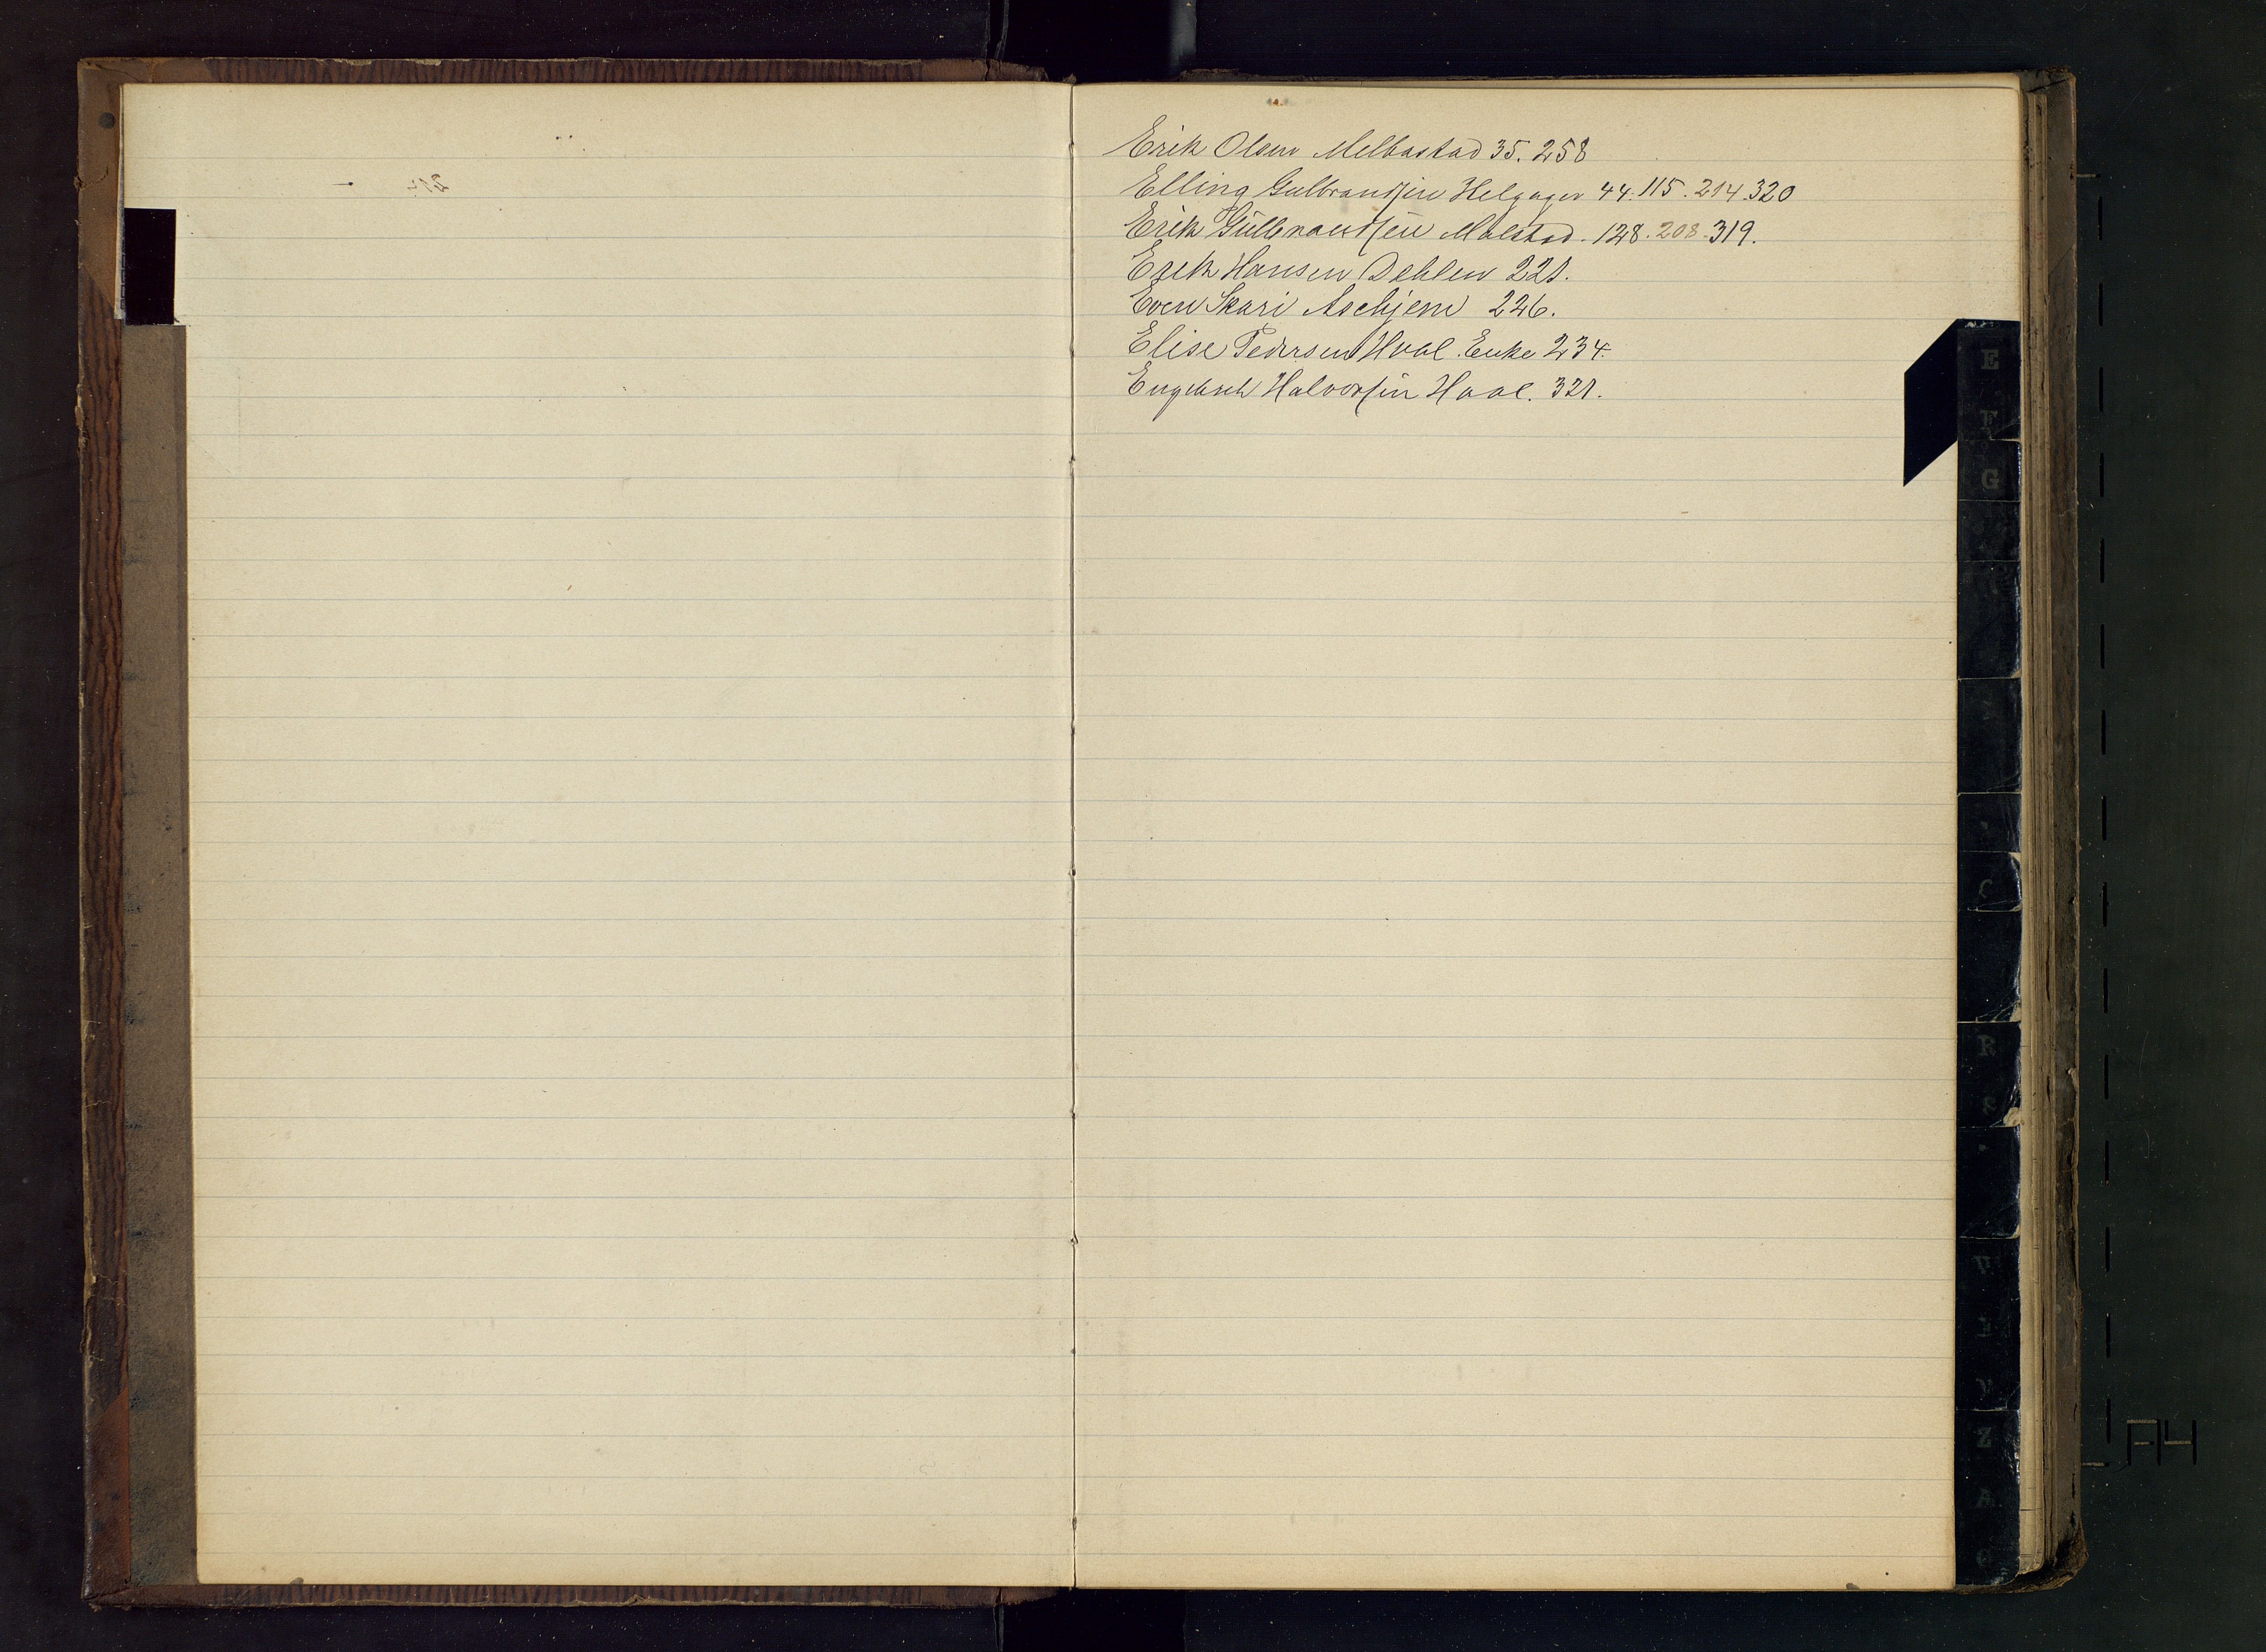 Erik Olsen Melbostad 35. 258
Elling Gulbrandsen Helgager 44. 115. 214. 320
Erik Gulbrandsen Molstad. 128. 208. 319.
Erik Hansen Dehlen 221.
Even Skari Aschjem 226.
Elise Pedersen Hval. Enke 234.
Engebret Halvorsen Hval. 321.
E
F
G
R
S
V
Z